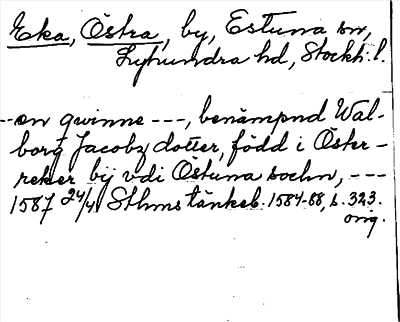 Eka, Östra, by, Estuna sn,
Lyhundra hd, Stockh. l.
--en qwinne ---, benämpnd Wal-
borg Jacobz dotter, född i Öster-
reker bij vdi Östuna sochn, ---
1587 24/4 Sthms tänkeb. 1584-88, s. 323.
orig.